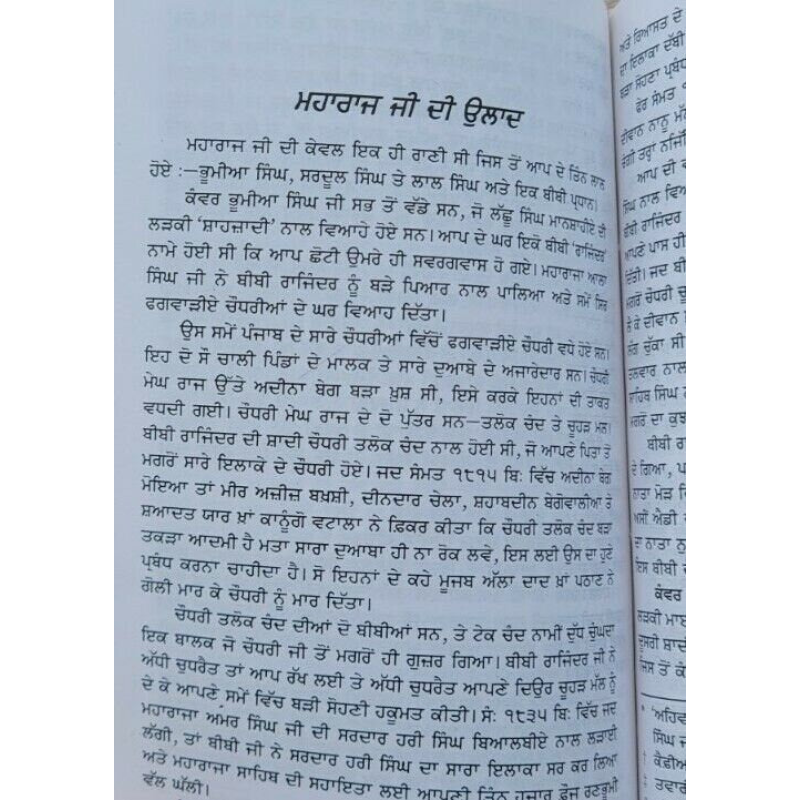 ਮਹਾਰਾਜ ਜੀ ਦੀ ਉਲਾਦ
ਮਹਾਰਾਜ ਜੀ ਦੀ ਕੇਵਲ ਇਕ ਹੀ ਰਾਣੀ ਸੀ ਜਿਸ ਤੋਂ ਆਪ ਦੇ ਤਿੰਨ ਲਾਲ
ਹੋਏ :—ਭੂਮੀਆ ਸਿੰਘ, ਸਰਦੂਲ ਸਿੰਘ ਤੇ ਲਾਲ ਸਿੰਘ ਅਤੇ ਇਕ ਬੀਬੀ ਪ੍ਰਧਾਨ।
ਕੰਵਰ ਭੂਮੀਆ ਸਿੰਘ ਜੀ ਸਭ ਤੋਂ ਵੱਡੇ ਸਨ, ਜੋ ਲੱਛੂ ਸਿੰਘ ਮਾਨਸ਼ਾਹੀਏ ਦੀ
ਲੜਕੀ ‘ਸ਼ਾਹਜ਼ਾਦੀ’ ਨਾਲ ਵਿਆਹੇ ਹੋਏ ਸਨ। ਆਪ ਦੇ ਘਰ ਇਕੋ ਬੀਬੀ ‘ਰਾਜਿੰਦਰ’
ਨਾਮੇ ਹੋਈ ਸੀ ਕਿ ਆਪ ਛੋਟੀ ਉਮਰੇ ਹੀ ਸਵਰਗਵਾਸ ਹੋ ਗਏ। ਮਹਾਰਾਜਾ ਆਲਾ
ਸਿੰਘ ਜੀ ਨੇ ਬੀਬੀ ਰਾਜਿੰਦਰ ਨੂੰ ਬੜੇ ਪਿਆਰ ਨਾਲ ਪਾਲਿਆ ਅਤੇ ਸਮੇਂ ਸਿਰ
ਫਗਵਾੜੀਏ ਚੌਧਰੀਆਂ ਦੇ ਘਰ ਵਿਆਹ ਦਿੱਤਾ।
ਉਸ ਸਮੇਂ ਪੰਜਾਬ ਦੇ ਸਾਰੇ ਚੌਧਰੀਆਂ ਵਿੱਚੋਂ ਫਗਵਾੜੀਏ ਚੌਧਰੀ ਵਧੇ ਹੋਏ ਸਨ।
ਇਹ ਦੋ ਸੌ ਚਾਲੀ ਪਿੰਡਾਂ ਦੇ ਮਾਲਕ ਤੇ ਸਾਰੇ ਦੁਆਬੇ ਦੇ ਅਜਾਰੇਦਾਰ ਸਨ। ਚੌਧਰੀ
ਮੇਘ ਰਾਜ ਉੱਤੇ ਅਦੀਨਾ ਬੇਗ ਬੜਾ ਖ਼ੁਸ਼ ਸੀ, ਇਸੇ ਕਰਕੇ ਇਹਨਾਂ ਦੀ ਤਾਕਤ
ਵਧਦੀ ਗਈ। ਚੌਧਰੀ ਮੇਘ ਰਾਜ ਦੇ ਦੋ ਪੁੱਤਰ ਸਨ—ਤਲੋਕ ਚੰਦ ਤੇ ਚੂਹੜ ਮਲ।
ਬੀਬੀ ਰਾਜਿੰਦਰ ਦੀ ਸ਼ਾਦੀ ਚੌਧਰੀ ਤਲੋਕ ਚੰਦ ਨਾਲ ਹੋਈ ਸੀ, ਜੋ ਆਪਣੇ ਪਿਤਾ ਤੋਂ
ਮਗਰੋਂ ਸਾਰੇ ਇਲਾਕੇ ਦੇ ਚੌਧਰੀ ਹੋਏ। ਜਦ ਸੰਮਤ ੧੮੧੫ ਬਿ: ਵਿੱਚ ਅਦੀਨਾ ਬੇਗ
ਮੋਇਆ ਤਾਂ ਮੀਰ ਅਜ਼ੀਜ਼ ਬਖ਼ਸ਼ੀ, ਦੀਨਦਾਰ ਚੇਲਾ, ਸ਼ਹਾਬਦੀਨ ਬੇਗੋਵਾਲੀਆ ਤੇ
ਸ਼ਆਦਤ ਯਾਰ ਖ਼ਾਂ ਕਾਨੂੰਗੋ ਵਟਾਲਾ ਨੇ ਫ਼ਿਕਰ ਕੀਤਾ ਕਿ ਚੌਧਰੀ ਤਲੋਕ ਚੰਦ ਬੜਾ
ਤਕੜਾ ਆਦਮੀ ਹੈ ਮਤਾ ਸਾਰਾ ਦੁਆਬਾ ਹੀ ਨਾ ਰੋਕ ਲਵੇ, ਇਸ ਲਈ ਉਸ ਦਾ ਹੁਣੇ
ਪ੍ਰਬੰਧ ਕਰਨਾ ਚਾਹੀਦਾ ਹੈ। ਸੋ ਇਹਨਾਂ ਦੇ ਕਹੇ ਮੂਜਬ ਅੱਲਾ ਦਾਦ ਖ਼ਾਂ ਪਠਾਣ ਨੇ
ਗੋਲੀ ਮਾਰ ਕੇ ਚੌਧਰੀ ਨੂੰ ਮਾਰ ਦਿੱਤਾ।
ਚੌਧਰੀ ਤਲੋਕ ਚੰਦ ਦੀਆਂ ਦੋ ਬੀਬੀਆਂ ਸਨ, ਤੇ ਟੇਕ ਚੰਦ ਨਾਮੀਂ ਦੁੱਧ ਚੁੰਘਦਾ
ਇਕ ਬਾਲਕ ਜੋ ਚੌਧਰੀ ਜੀ ਤੋਂ ਮਗਰੋਂ ਹੀ ਗੁਜ਼ਰ ਗਿਆ। ਬੀਬੀ ਰਾਜਿੰਦਰ ਜੀ ਨੇ
ਅੱਧੀ ਚੁਧਰੈਤ ਤਾਂ ਆਪ ਰੱਖ ਲਈ ਤੇ ਅੱਧੀ ਚੁਧਰੈਤ ਆਪਣੇ ਦਿਉਰ ਚੂਹੜ ਮੱਲ ਨੂੰ
ਦੇ ਕੇ ਆਪਣੇ ਸਮੇਂ ਵਿੱਚ ਬੜੀ ਸੋਹਣੀ ਹਕੂਮਤ ਕੀਤੀ। ਸੰ: ੧੮੩੫ ਬਿ: ਵਿੱਚ ਜਦ
ਮਹਾਰਾਜਾ ਅਮਰ ਸਿੰਘ ਜੀ ਦੀ ਸਰਦਾਰ ਹਰੀ ਸਿੰਘ ਬਿਆਲਬੀਏ ਨਾਲ ਲੜਾਈ
ਲੱਗੀ, ਤਾਂ ਬੀਬੀ ਜੀ ਨੇ ਸਰਦਾਰ ਹਰੀ ਸਿੰਘ ਦਾ ਸਾਰਾ ਇਲਾਕਾ ਸਰ ਕਰ ਲਿਆ
ਅਤੇ ਮਹਾਰਾਜਾ ਸਾਹਿਬ ਦੀ ਸਹਾਇਤਾ ਲਈ ਆਪਣੀ ਤਿੰਨ ਹਜ਼ਾਰ ਫ਼ੌਜ ਰਣਭੂਮੀ
ਵੱਲ ਘੱਲੀ।
ਅਤੇ ਰਿਆਸਤ ਦੇ
ਦਾ ਇਲਾਕਾ ਦੱਬੀ
ਬੜਾ ਸੋਹਣਾ ਪ੍ਰਬੰਧ
ਫੇਰ ਸੰਮਤ ੧
ਦੀਵਾਨ ਨਾਨੂ ਮੱ
ਚੰਗੀ ਤਰ੍ਹਾਂ ਨਜਿੱ
ਆਪ ਦੀ
ਸਿੰਘ ਨਾਲ ਵਿਆ
ਬੀਬੀ ਰਾਜਿੰਦਰ
ਆਪਣੇ ਪਾਸ ਹੀ
ਦਿੱਤੀ। ਜਦ ਬੀਬੀ
ਮਗਰੋਂ ਚੌਧਰੀ ਚੂ
ਲੈ ਕੇ ਦੀਵਾਨ ਸਿੰਘ
ਲੰਗ ਚੁੱਕਾ ਸੀ।
ਤਲਵਾਰ ਨਾਲ
ਸਾਹਿਬ ਸਿੰਘ
ਮਗਰੋਂ ਦਾ ਕੁਝ
ਬੀਬੀ ਰਾ
ਦੇ ਗਿਆ, ਪ
ਨਾਤਾ ਮੋੜ ਦਿ
ਅਸੀਂ ਐਡੀ
ਦਾ ਨਾਤਾ ਨੂ
ਇਸ ਬੀਬੀ ਦ
ਕੰਵਰ
ਲੜਕੀ ਮਾਈ
ਦੂਸਰੀ ਸ਼ਾਦੀ
ਜਿਸ ਤੋਂ ਕੰ
* ‘ਅਹਿਵਾ
ਸਿੰਘ ਜ
ਕੈਫ਼ੀਆ
ਤਵਾਰੀ